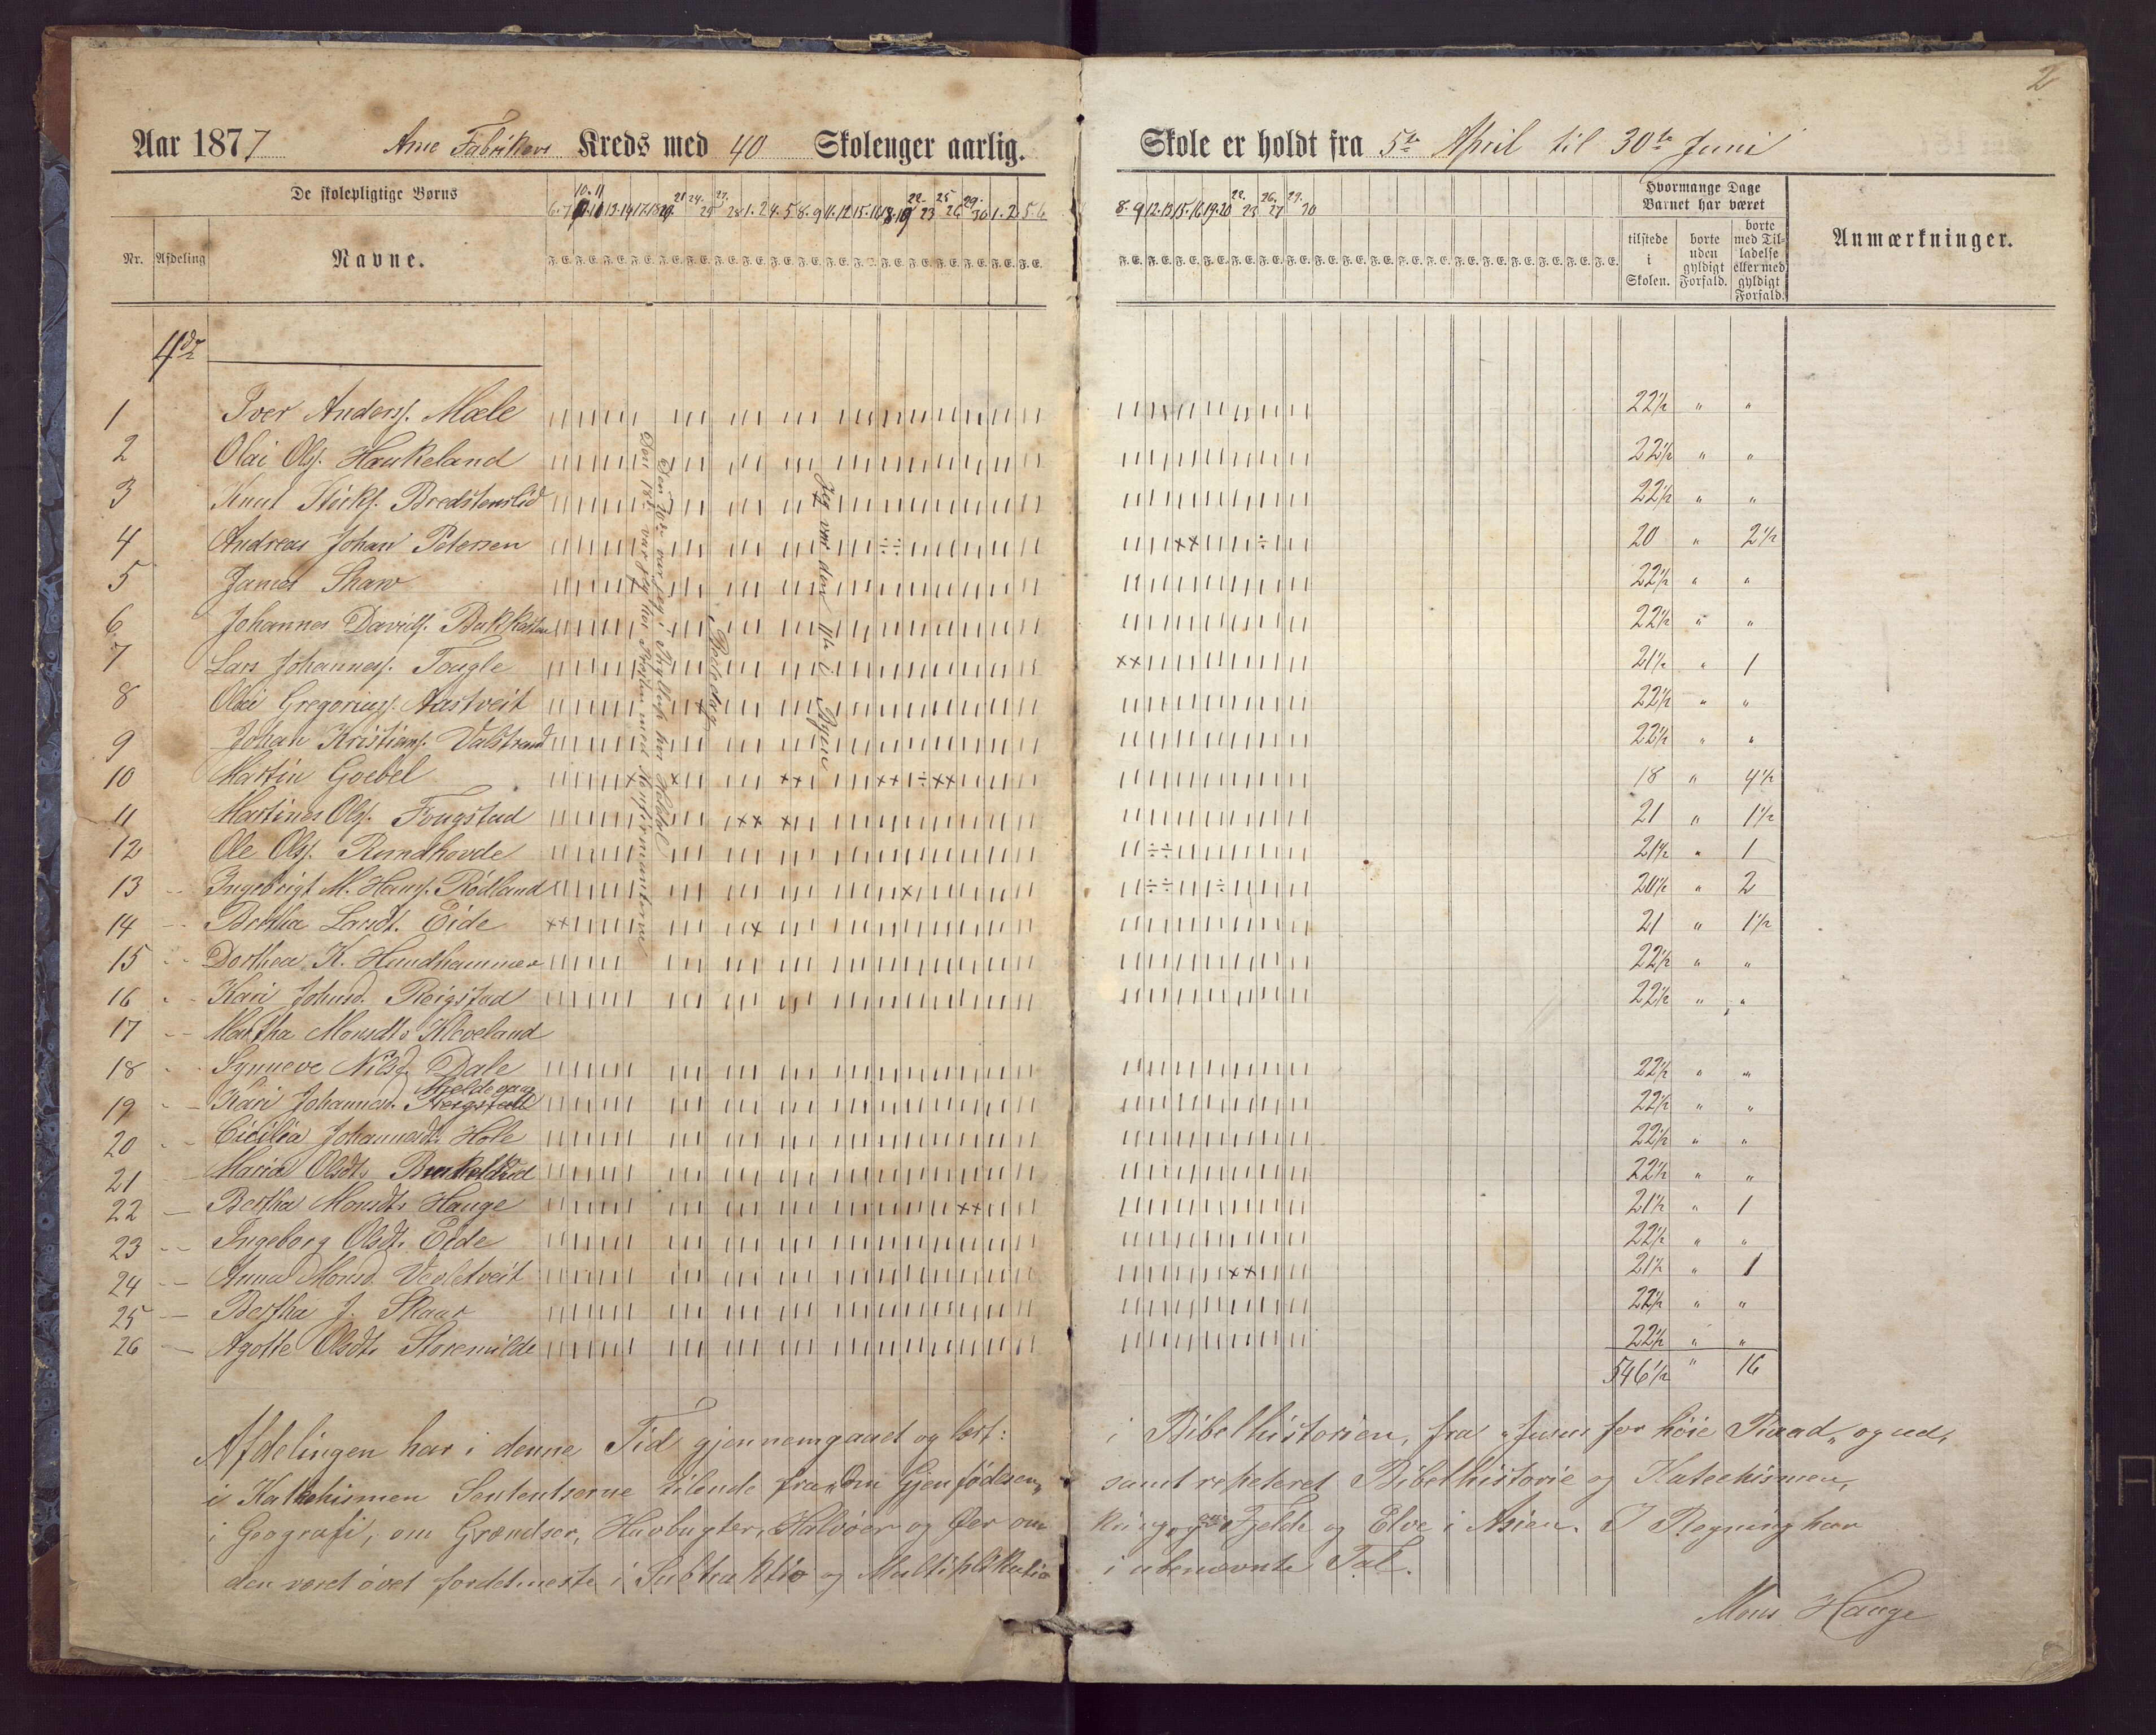 2
Aar 1877 Arne Fabrikers Kreds med 40 Skoleuger aarlig.
Skole er holdt fra 5te April til 30te Juni
De skolepligtige Børns
Nr. Afdeling Navne.
Hvormange Dage Barnet har været
tilstede i Skolen.
borte uden gyldigt Forfald.
borte med Tilladelse eller med gyldigt Forfald.
Anmærkninger.
1 Iver Anderss. Mæle 22½ " "
2 Olai Ols. Haukeland 22½ " "
3 Knut Størks. Bredstenslid 22½ " "
4 Andreas Johan Petersen 20 " 2½
5 James Shaw 22½ " "
6 Johannes Davids. 22½ " "
7 Lars Johanness. Tougle 21½ " 1
8 Olai Gregoriuss. Aastveit 22½ " "
9 Johan Kristians. Valstrand 22½ " "
10 Martin Goebel 18 " 4½
11 Martines Ols. Fougstad 21 " 1½
12 Ole Ols. Romdhovde 21½ " 1
13 Ingebrigt M. Hans. Rødland 20½ " 2
14 Bertha Larsdt. Eide 21 " 1½
15 Dorthea K. Hundhammer 22½ " "
16 Kari Johnsd. Reigstad 22½ " "
17 Martha Monsdt. Kleveland
18 Synneve Nilsd. Dale 22½ " "
19 Kari Johannesd. Mjeldevaag 22½ " "
20 Cicilia Johannesdt. Hole 22½ " "
21 Maria Olsdt. 22½ " "
22 Bertha Monsdt. Hauge 21½ " 1
23 Ingeborg Olsdt. Eide 22½ " "
24 Anna Monsd. Vevletveit 21½ " 1
25 Bertha J. Skaar 22½ " "
26 Agotte Olsdt. Storemilde 22½ " "
546½ " 16
Den 18de var jeg hos Præsten med Konfirmanterne
Den 20de var jeg i Bryllup hos
Bededag
Jeg var den 11te i Byen
Afdelingen har i denne Tid gjennemgaaet og lært:
i Katekismen Sententserne tilende fra „Om Gjenfødelsen„
i Geografi, om Grændser, Havbugter, Halvøer og Øer om
den været øvet fordetmeste i Subtraktio og Multiplikatio
i Bibelhistorien, fra „Jesus for høie Raad„ og ud,
samt repeteret Bibelhistorie og Katechismen,
kring, og om Fjelde og Elve i Asien. I Regning har
i ubenævnte Tal.
Mons Hauge